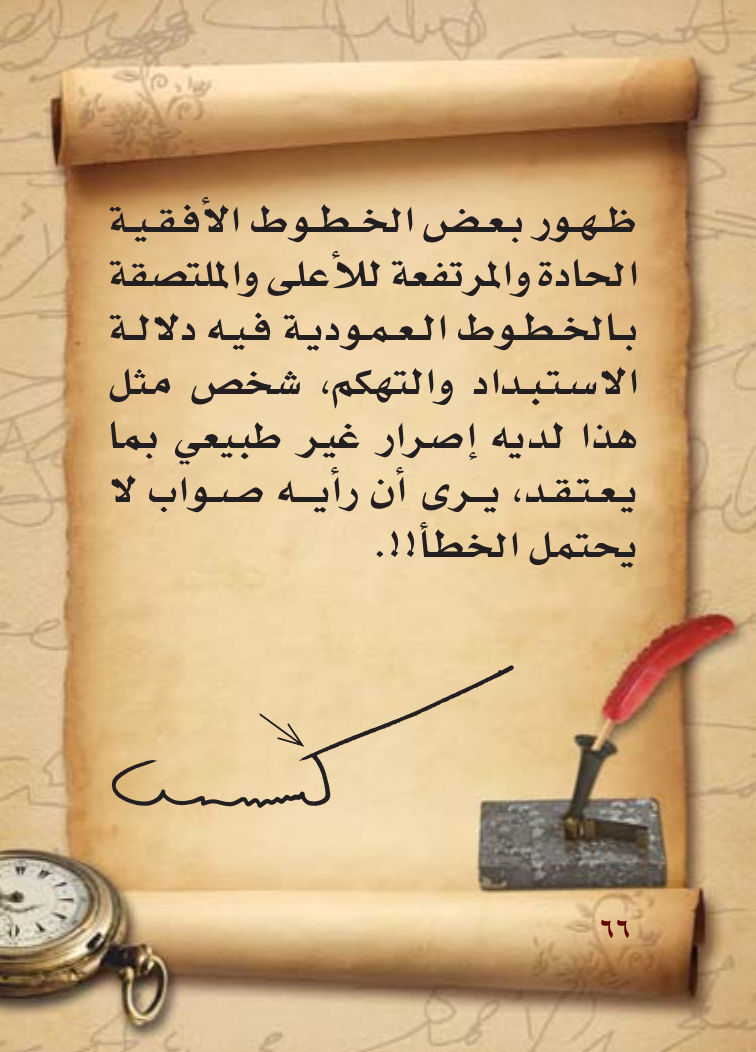 ظهور بعض الخطوط الأفقية
الحادة والمرتفعة للأعلى والملتصقة
بالخطوط العمودية فيه دلالة
الاستبداد والتهكم، شخص مثل
هذا لديه إصرار غير طبيعي بما
يعتقد، يرى أن رأيه صواب لا
يحتمل الخطأ!!.
٦٦